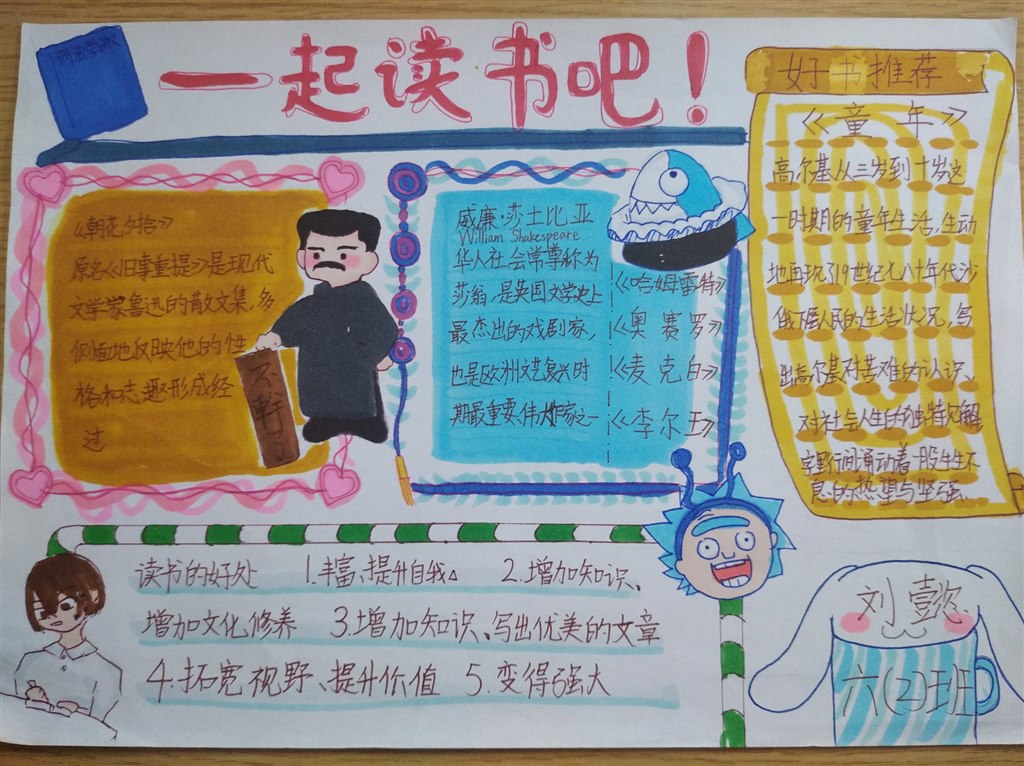 一起读书吧！
《朝花夕拾》
原名《旧事重提》是现代
文学家鲁迅的散文集，多
侧面地反映他的性
格和志趣形成经
过
威廉·莎士比亚
William Shakespeare
华人社会常尊称为
莎翁，是英国文学史上
最杰出的戏剧家，
也是欧洲文艺复兴时
期最重要、伟大作家之一
《哈姆雷特》
《奥赛罗》
《麦克白》
《李尔王》
好书推荐
《童年》
高尔基从三岁到十岁这
一时期的童年生活，生动
地再现了19世纪七八十年代沙
俄下层人民的生活状况，写
出高尔基对苦难的认识、
对社会人生的独特见解
字里行间涌动着一股生生不
息的热望与坚强
读书的好处 1.丰富、提升自我 2.增加知识、
增加文化修养 3.增加知识、写出优美的文章
4.拓宽视野、提升价值 5.变得强大
刘懿
六(2)班